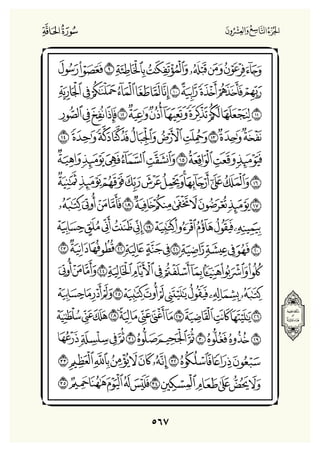 الجُزْءُ التَّاسِعُ وَالعِشْرُونَ
سُورَةُ الحَاقَّةِ
وَجَآءَ فِرْعَوْنُ وَمَن قَبْلَهُۥ وَٱلْمُؤْتَفِكَٰتُ بِٱلْخَاطِئَةِ ٩ فَعَصَوْا۟ رَسُولَ
رَبِّهِمْ فَأَخَذَهُمْ أَخْذَةً رَّابِيَةً ١٠ إِنَّا لَمَّا طَغَا ٱلْمَآءُ حَمَلْنَٰكُمْ فِى ٱلْجَارِيَةِ
١١ لِنَجْعَلَهَا لَكُمْ تَذْكِرَةً وَتَعِيَهَآ أُذُنٌ وَٰعِيَةٌ ١٢ فَإِذَا نُفِخَ فِى ٱلصُّورِ
نَفْخَةٌ وَٰحِدَةٌ ١٣ وَحُمِلَتِ ٱلْأَرْضُ وَٱلْجِبَالُ فَدُكَّتَا دَكَّةً وَٰحِدَةً ١٤
فَيَوْمَئِذٍ وَقَعَتِ ٱلْوَاقِعَةُ ١٥ وَٱنشَقَّتِ ٱلسَّمَآءُ فَهِىَ يَوْمَئِذٍ وَاهِيَةٌ
١٦ وَٱلْمَلَكُ عَلَىٰٓ أَرْجَآئِهَا وَيَحْمِلُ عَرْشَ رَبِّكَ فَوْقَهُمْ يَوْمَئِذٍ ثَمَٰنِيَةٌ
١٧ يَوْمَئِذٍ تُعْرَضُونَ لَا تَخْفَىٰ مِنكُمْ خَافِيَةٌ ١٨ فَأَمَّا مَنْ أُوتِىَ كِتَٰبَهُۥ
بِيَمِينِهِۦ فَيَقُولُ هَآؤُمُ ٱقْرَءُوا۟ كِتَٰبِيَهْ ١٩ إِنِّى ظَنَنتُ أَنِّى مُلَٰقٍ حِسَابِيَهْ
٢٠ فَهُوَ فِى عِيشَةٍ رَّاضِيَةٍ ٢١ فِى جَنَّةٍ عَالِيَةٍ ٢٢ قُطُوفُهَا دَانِيَةٌ ٢٣
كُلُوا۟ وَٱشْرَبُوا۟ هَنِيٓـًٔۢا بِمَآ أَسْلَفْتُمْ فِى ٱلْأَيَّامِ ٱلْخَالِيَةِ ٢٤ وَأَمَّا مَنْ أُوتِىَ
كِتَٰبَهُۥ بِشِمَالِهِۦ فَيَقُولُ يَٰلَيْتَنِى لَمْ أُوتَ كِتَٰبِيَهْ ٢٥ وَلَمْ أَدْرِ مَا حِسَابِيَهْ
٢٦ يَٰلَيْتَهَا كَانَتِ ٱلْقَاضِيَةَ ٢٧ مَآ أَغْنَىٰ عَنِّى مَالِيَهْ ٢٨ هَلَكَ عَنِّى سُلْطَٰنِيَهْ
٢٩ خُذُوهُ فَغُلُّوهُ ٣٠ ثُمَّ ٱلْجَحِيمَ صَلُّوهُ ٣١ ثُمَّ فِى سِلْسِلَةٍ ذَرْعُهَا
سَبْعُونَ ذِرَاعًا فَٱسْلُكُوهُ ٣٢ إِنَّهُۥ كَانَ لَا يُؤْمِنُ بِٱللَّهِ ٱلْعَظِيمِ ٣٣
وَلَا يَحُضُّ عَلَىٰ طَعَامِ ٱلْمِسْكِينِ ٣٤ فَلَيْسَ لَهُ ٱلْيَوْمَ هَٰهُنَا حَمِيمٌ ٣٥
٥٦٧